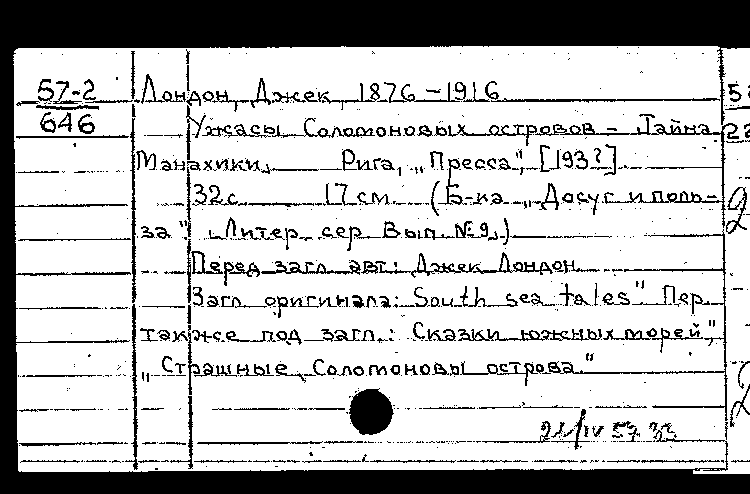 57-2
646
Лондон, Джек, 1876-1916.
Ужасы Соломоновых островов - Тайна
Манахики. Рига, "Пресса", [193?]
32с. 17см. (Б-ка "Досуг и поль-
за". Литер. сер. Вып. № 9.)
Перед загл. авт: Джек Лондон
Загл. оригинала: South sea tales". Пер.
также под загл.: Сказки южных морей",
"Страшные Соломоновы острова."
21/IV 57